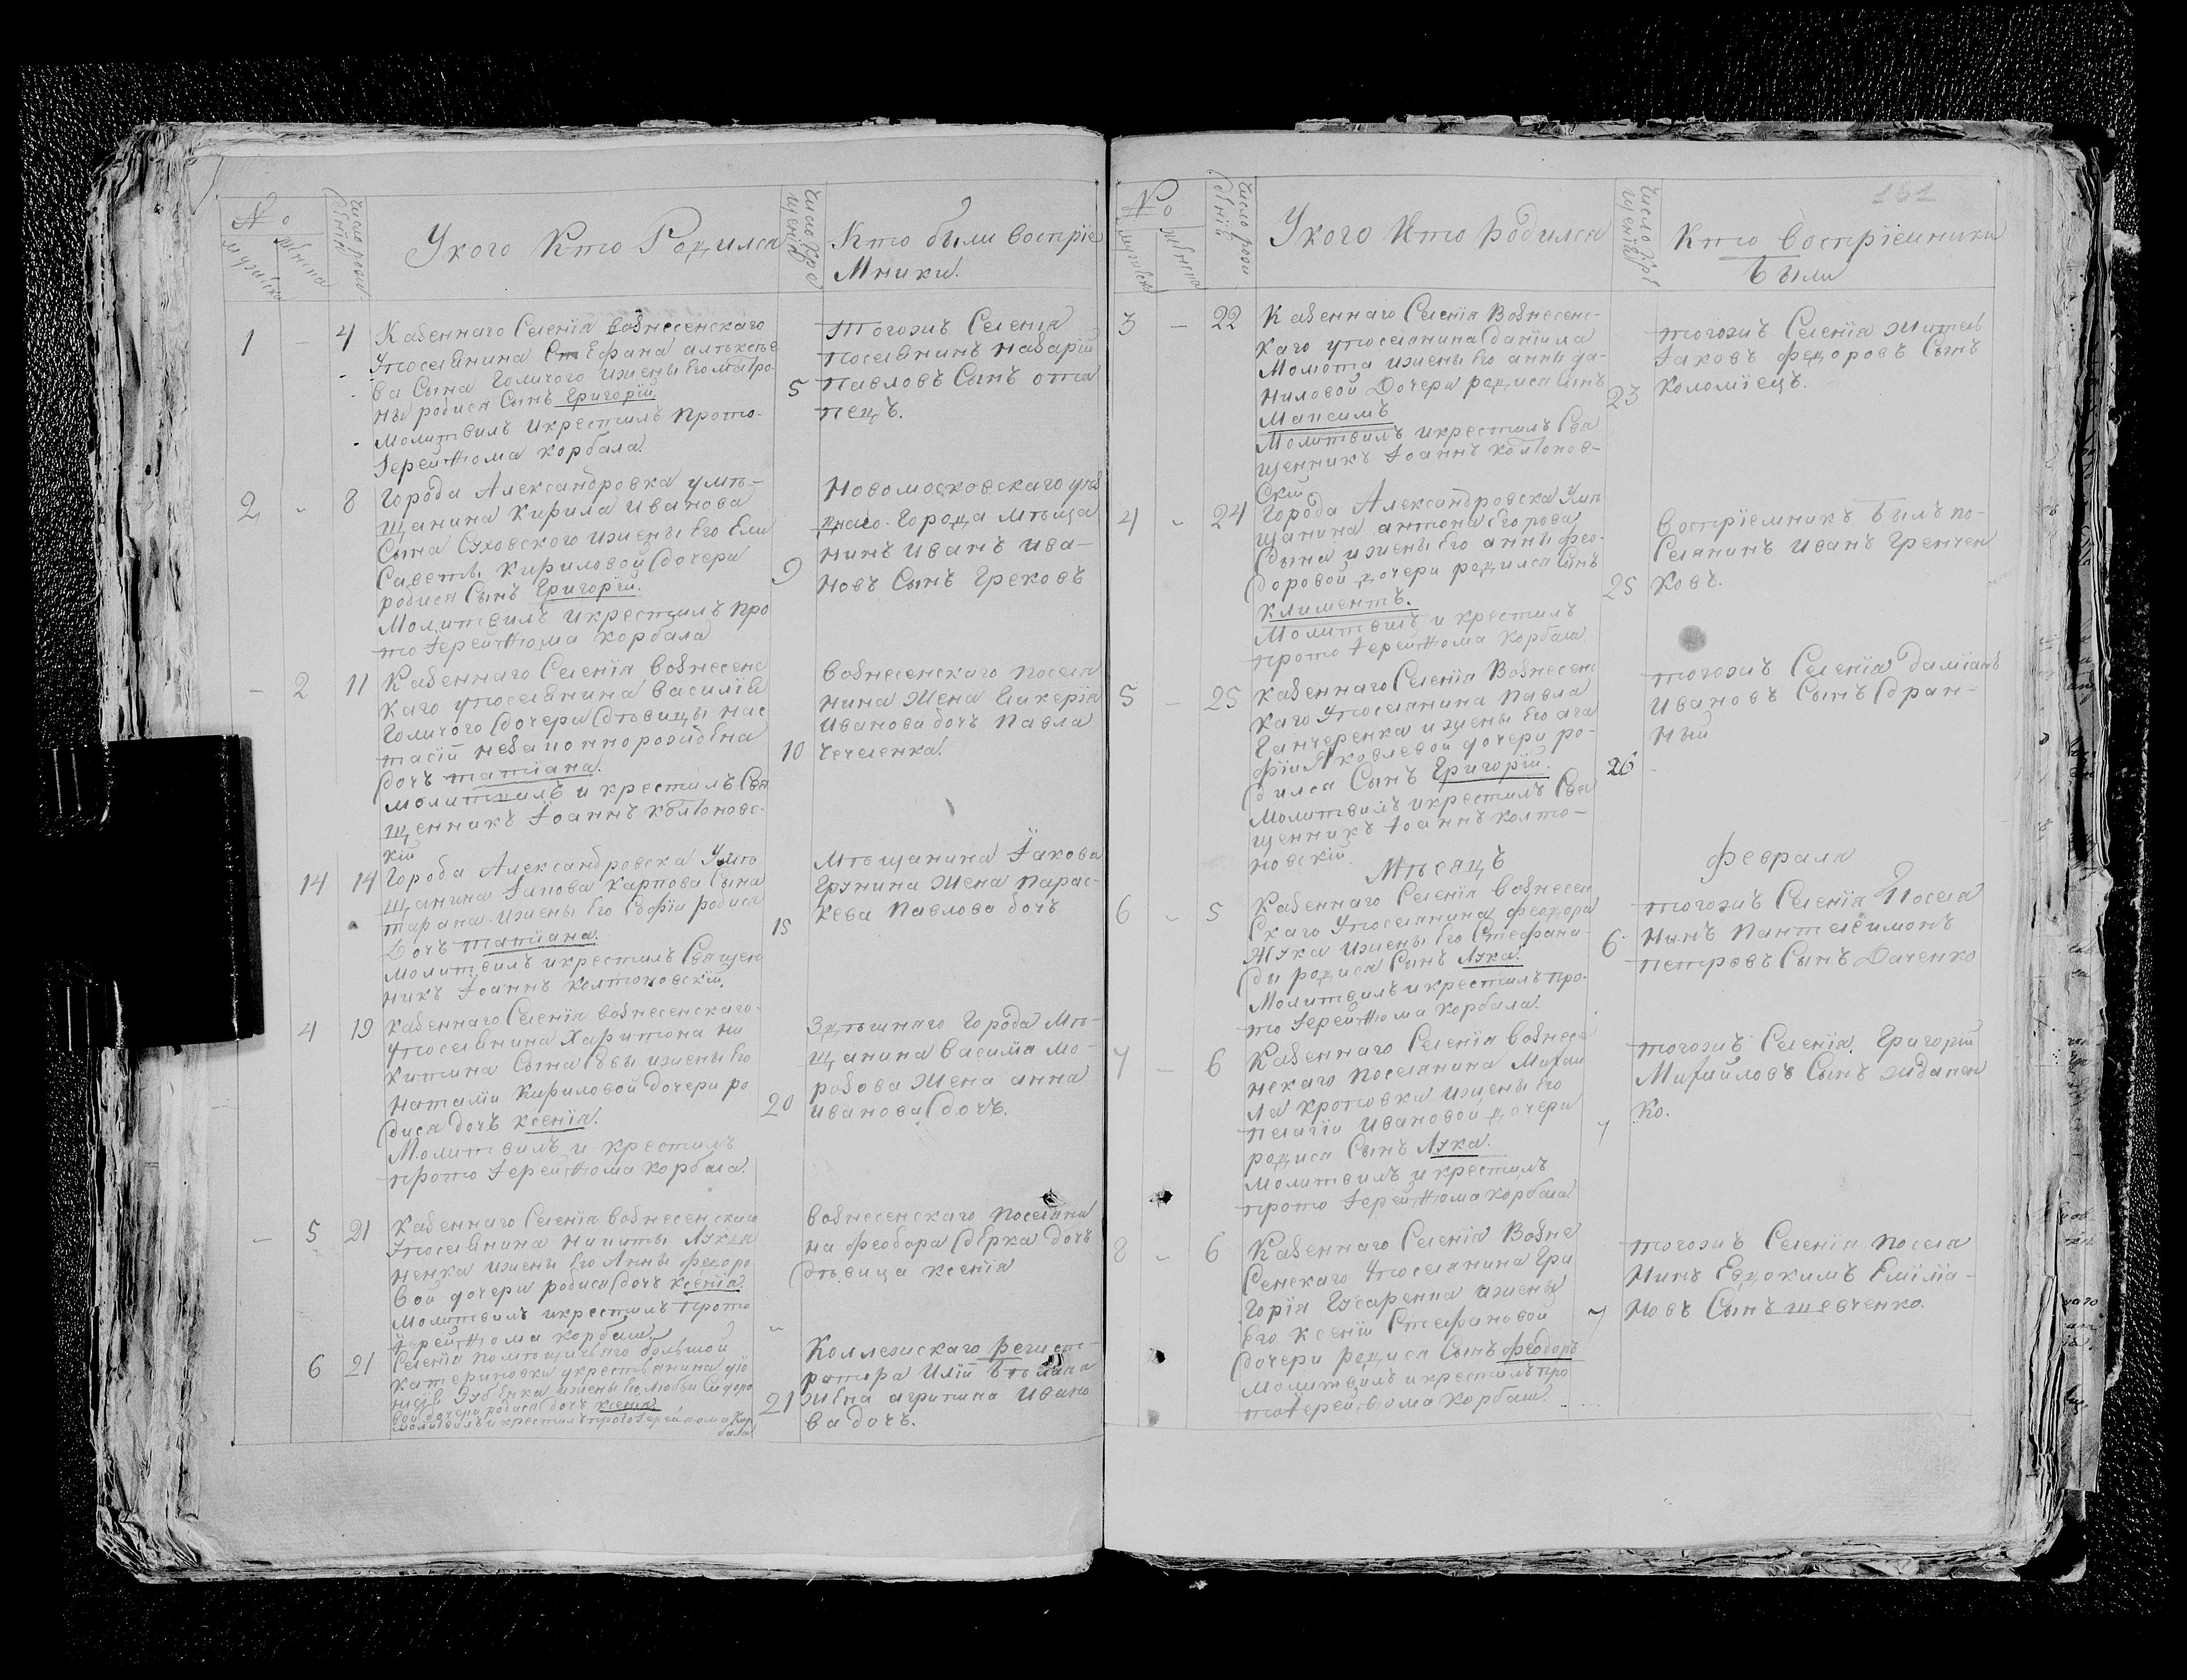 №
мужеска
женска
Число рожденій
У кого Кто Родился
Число Крещеній
Кто были Воспріе
мники.
1 - 4
Казеннаго Селенія Вознесенскаго
Упоселянина Стефана алексѣе
ва Сына Голичого ижены Его матро-
ны родися Сынъ Григорій
Молитвилъ Икрестилъ Прото-
Іерей Ѳома Корбала.
5
Тогожъ Селенія
поселянинъ Назарій
Павловъ Сынъ Ота
пецъ.
2 - 8
Города Александровка умѣ-
щанина Кирила Иванова
Сына Суховского ижены Его Ели
Саветы Кириловой дочери
родися Сынъ Григорій.
Молитвилъ икрестилъ про
то Іерей Ѳома Корбала
9
Новомосковскаго уѣз
днаго Города Мѣща
нинъ Иванъ Ива-
новъ Сынъ Грековъ
- 2 11
Казеннаго Селенія Вознесенс
каго упоселянина Василія
Голичого дочери дѣвицы Нас
тасіи незаконнорожденна
дочъ татіана.
молитвилъ и крестилъ Свя
щенникъ Іоаннъ Колтоновс-
кій
10
Вознесенскаго поселя
нина Жена Гликерія
Иванова дочъ Павла
Чечеленка.
14 14
Города Александровска Умѣ
щанина Іакова Карпова Сына
тарана ижены Его Софіи родися
Дочъ татіана.
Молитвилъ икрестилъ Священ
никъ Іоаннъ Колтоновскій.
15
Мѣщанина Іакова
Грунина Жена Парас-
кева Павлова дочъ
4 19
Казеннаго Селенія Вознесенскаго
упоселянина Харитона ни
китина Сына Евы ижены Его
Наталіи Кириловой дочери ро
дися дочъ Ксенія.
Молитвилъ и крестилъ
прото Іерей Ѳома Корбала.
20
Здѣшняго Города Мѣ-
щанина Василія Мо-
розова Жена анна
Иванова дочъ.
- 5 21
Казеннаго Селенія Вознесенскаго
Упоселянина Никиты Лукья
ненка ижены Его Анны Федоро
вой дочери родися дочъ Ксенія
Молитвилъ икрестилъ Прото
Іерей Ѳома Корбала
Вознесенскаго поселяни
на Феодора дѣрка дочъ
дѣвица Ксенія
6 21
Селенія помѣщичьяго большой
Катериновки укрестьянина
ижены Его Любви Сидоро
вой дочери родися дочъ Ксенія
Молитвилъ икрестилъ прото Іерей Ѳома Кор
бала
21
Коллежскаго регист-
ратора Иліи
жена агрипина Ивано
ва дочъ.
№
мужеска
женска
Число рожденій
У кого Кто родился
Число Крещенія
Кто Воспріемники
были
3 - 22
Казеннаго Селенія Вознесенс-
каго упоселянина Даніила
Момота ижены Его анны да-
ниловой Дочери родися Сынъ
Максимъ
Молитвилъ икрестилъ Свя
щенникъ Іоаннъ Колтонов-
Скій
23
тогожъ Селенія житель
Іаковъ Федоровъ Сынъ
Коломіецъ.
4 - 24
Города Александровска Умѣ
щанина антона Егорова
Сына ижены Его анны фео-
доровой дочери родился Сынъ
Климентъ.
Молитвилъ и крестилъ
прото Іерей Ѳома Корбала
25
Воспріемникъ былъ по-
Селянинъ Иванъ Гренчен
ковъ.
5 - 25
Казеннаго Селенія Вознесенс
каго Упоселянина Павла
Ганчеренка ижены Его ага
фіи Яковлевой дочери ро-
дился Сынъ Григорій.
Молитвилъ икрестилъ Свя
щенникъ Іоаннъ Колто-
новскій
26
тогожъ Селенія Даміанъ
Ивановъ Сынъ Дран-
ный
Мѣсяцъ Февраля
6 - 5
Казеннаго Селенія Вознесен
Скаго Упоселянина Феодора
Жука ижены Его Стефани-
ды родися Сынъ Лука.
Молитвилъ икрестилъ про-
то Іерей Ѳома Корбала.
6
тогожъ Селенія Посела
нинъ Пантелеимонъ
петровъ Сынъ Даченко
7 - 6
Казеннаго Селенія Вознесе
нскаго Поселянина Михаи
ла Кротовки ижены Его
Пелагіи Ивановой дочери
родися Сынъ Лука.
Молитвилъ и крестилъ
прото Іерей Ѳома Корбала
7
тогожъ Селенія Григорій
Михайловъ Сынъ Жданен
ко.
8 - 6
Казеннаго Селенія Возне
Сенскаго Упоселянина Гри
горія Гусаренка ижены
Его Ксеніи Стефановой
дочери родися Сынъ Феодоръ
Молитвилъ икрестилъ про
то Іерей Ѳома Корбала.
7
тогожъ Селенія посела
нинъ Евдокимъ Емилїа-
новъ Сынъ шевченко.